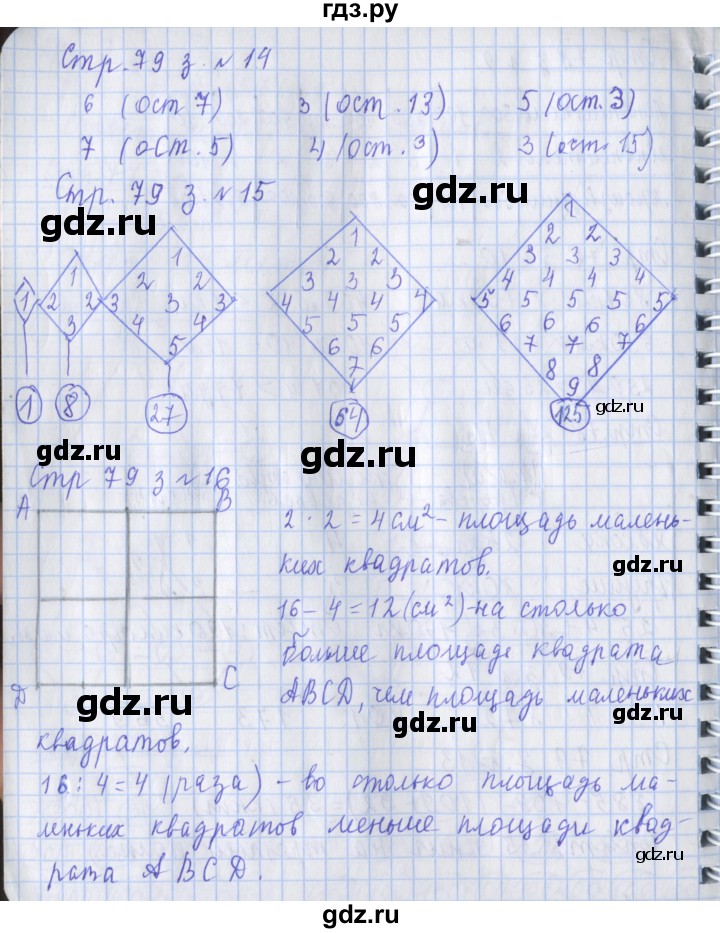 гдз.ру
Стр. 79 з. № 14
6 (ост 7) 3 (ост. 13) 5 (ост. 3)
7 (ост. 5) 4 (ост. 3) 3 (ост. 15)
Стр. 79 з. № 15
gdz.ru gdz.ru gdz.ru
1
1
2 2
3
1
2 2
3 3 3
4 4
5
1
2 2
3 3 3
4 4 4 4
5 5 5
6 6
7
1
2 2
3 3 3
4 4 4 4
5 5 5 5 5
6 6 6 6
7 7 7
8 8
9
1 8 27 64 125
gdz.ru
gdz.ru gdz.ru
Стр 79 з № 16
A B
D C
2 · 2 = 4 см² - площадь малень-
ких квадратов.
gdz.ru
16 - 4 = 12 (см²) - на столько
больше площадь квадрата
ABCD, чем площадь маленьких
gdz.ru gdz.ru gdz.ru
квадратов.
16 : 4 = 4 (раза) - во столько площадь ма-
леньких квадратов меньше площади квад-
рата ABCD.
gdz.ru
gdz.ru